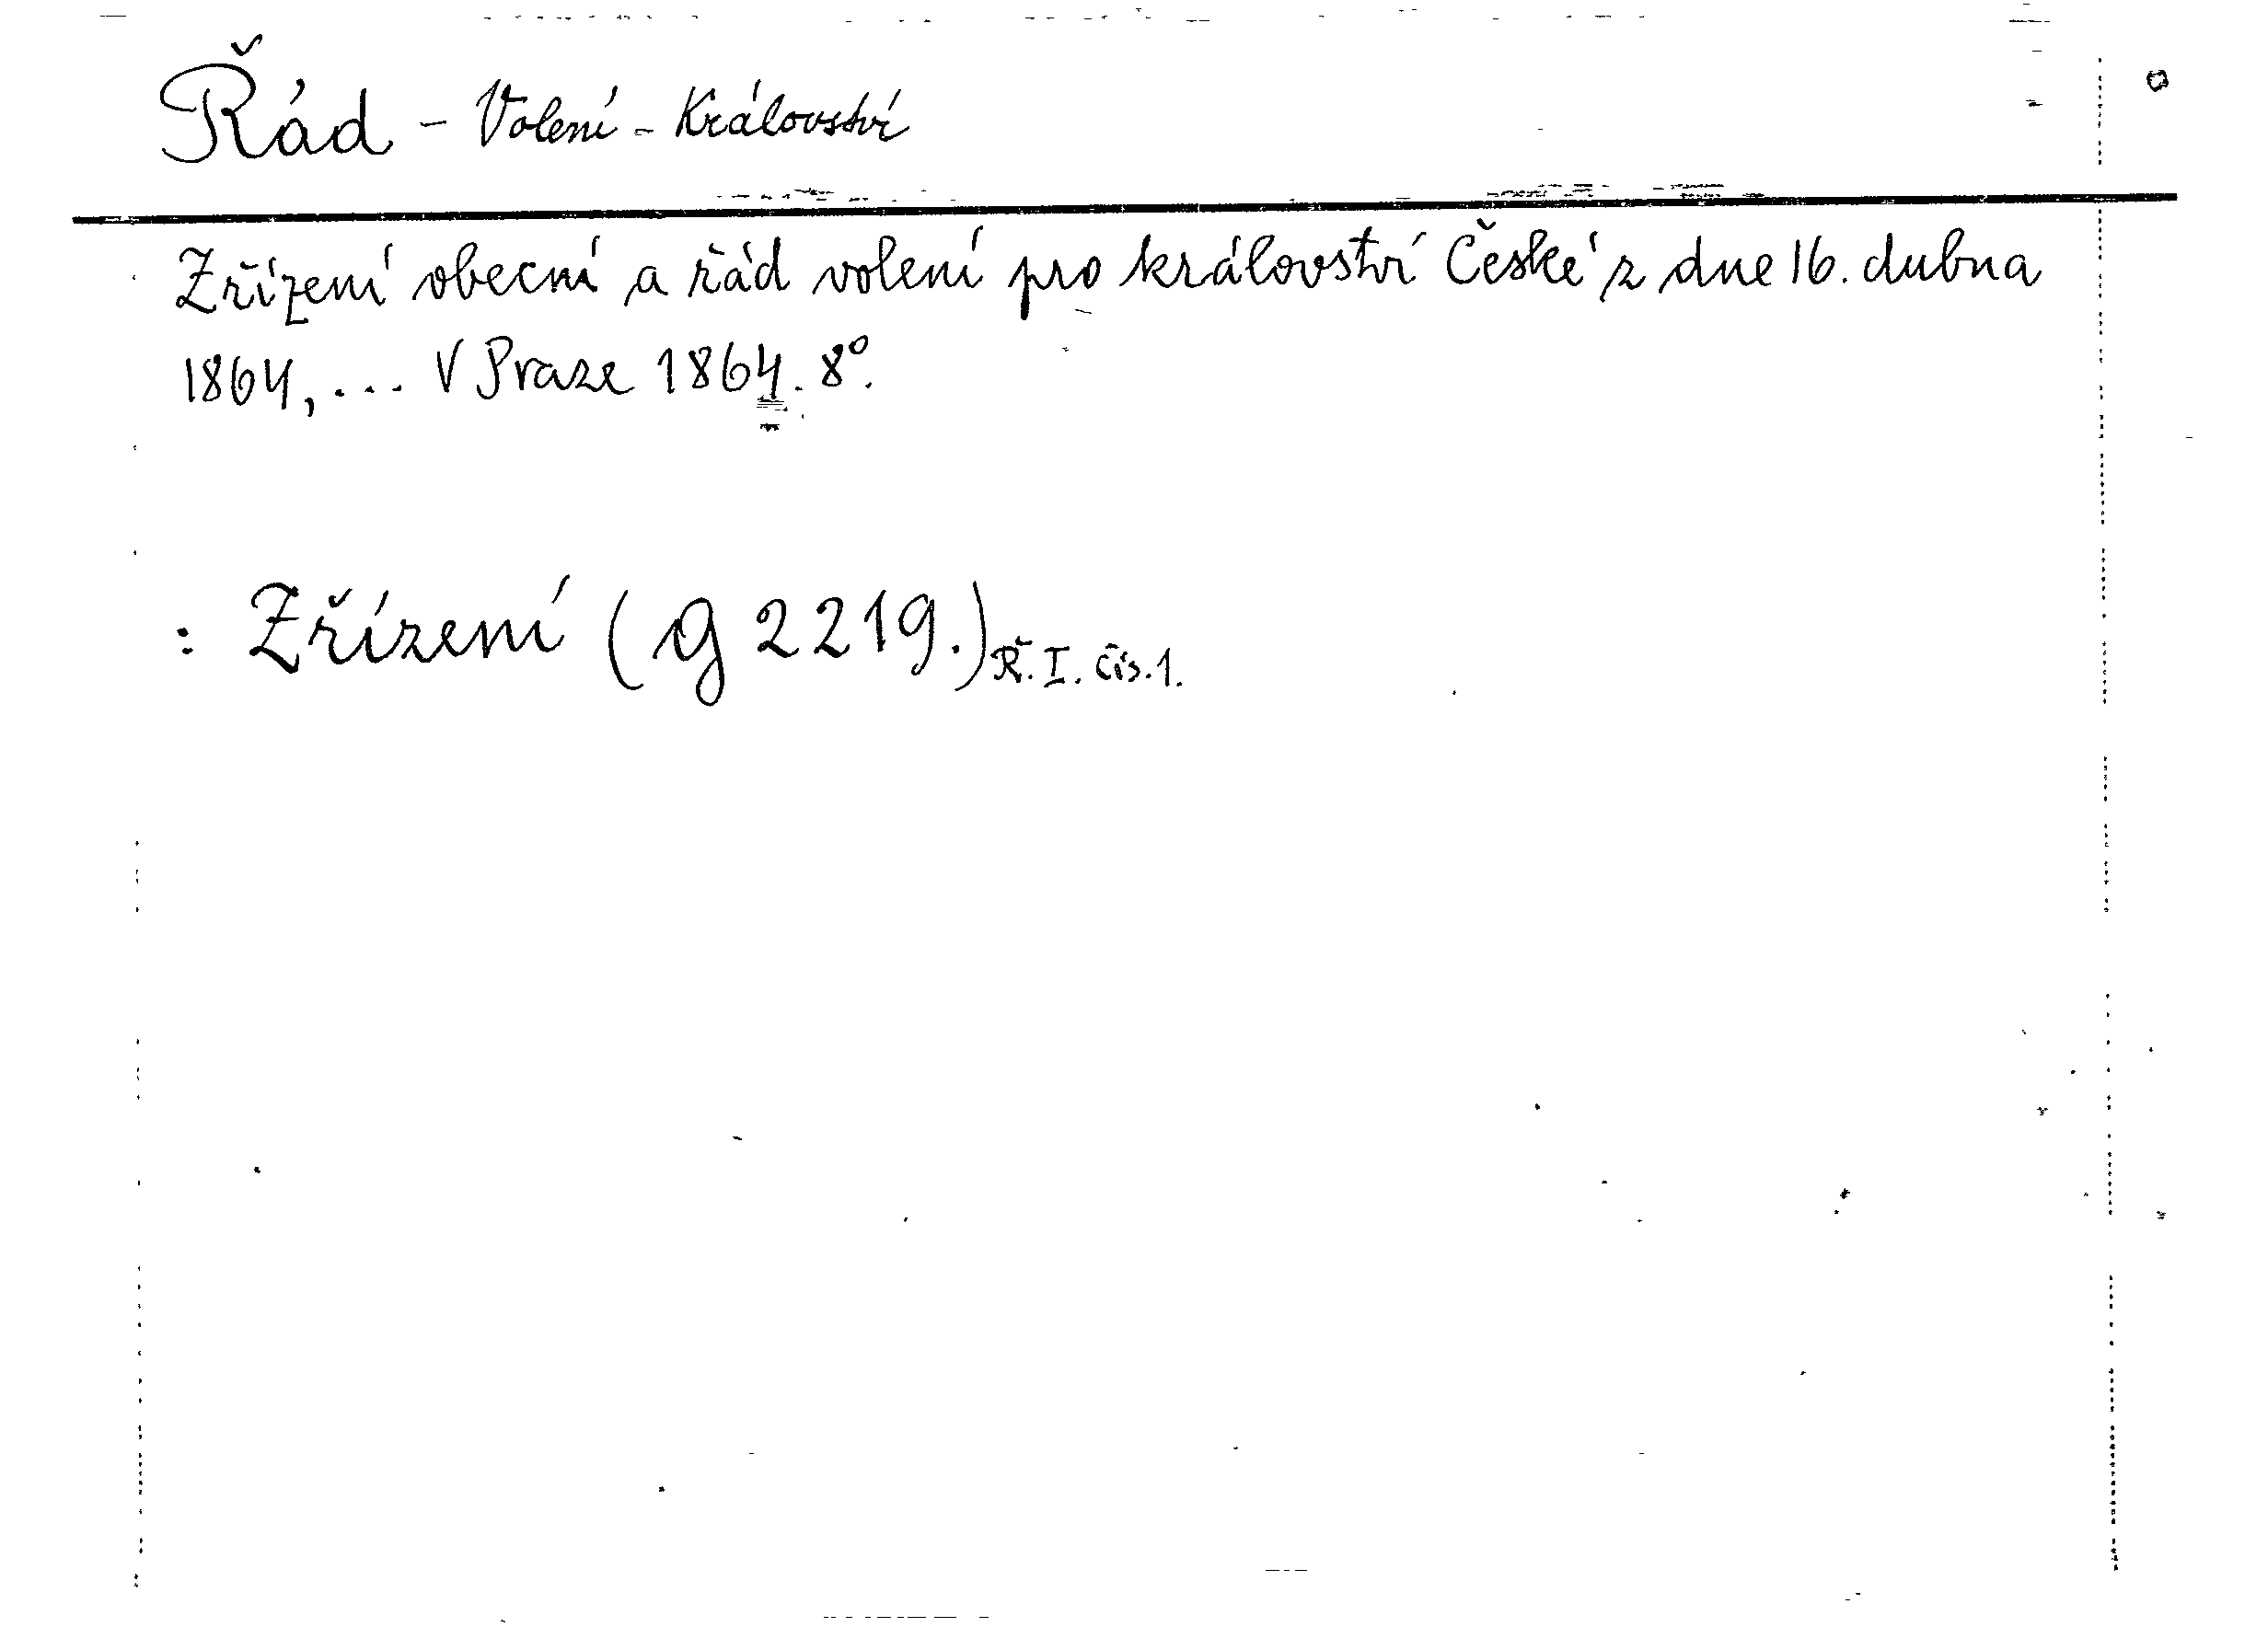 Řád - Volení - Království
Zřízení obecní a řád volení pro království České z dne 16. dubna
1864, ... V Praze 1864. 8°.
: Zřízení (g 2219.) Ř. I. čís. 1.